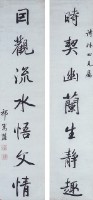 時契幽蘭生靜趣
回觀流水悟文情
祁寯藻